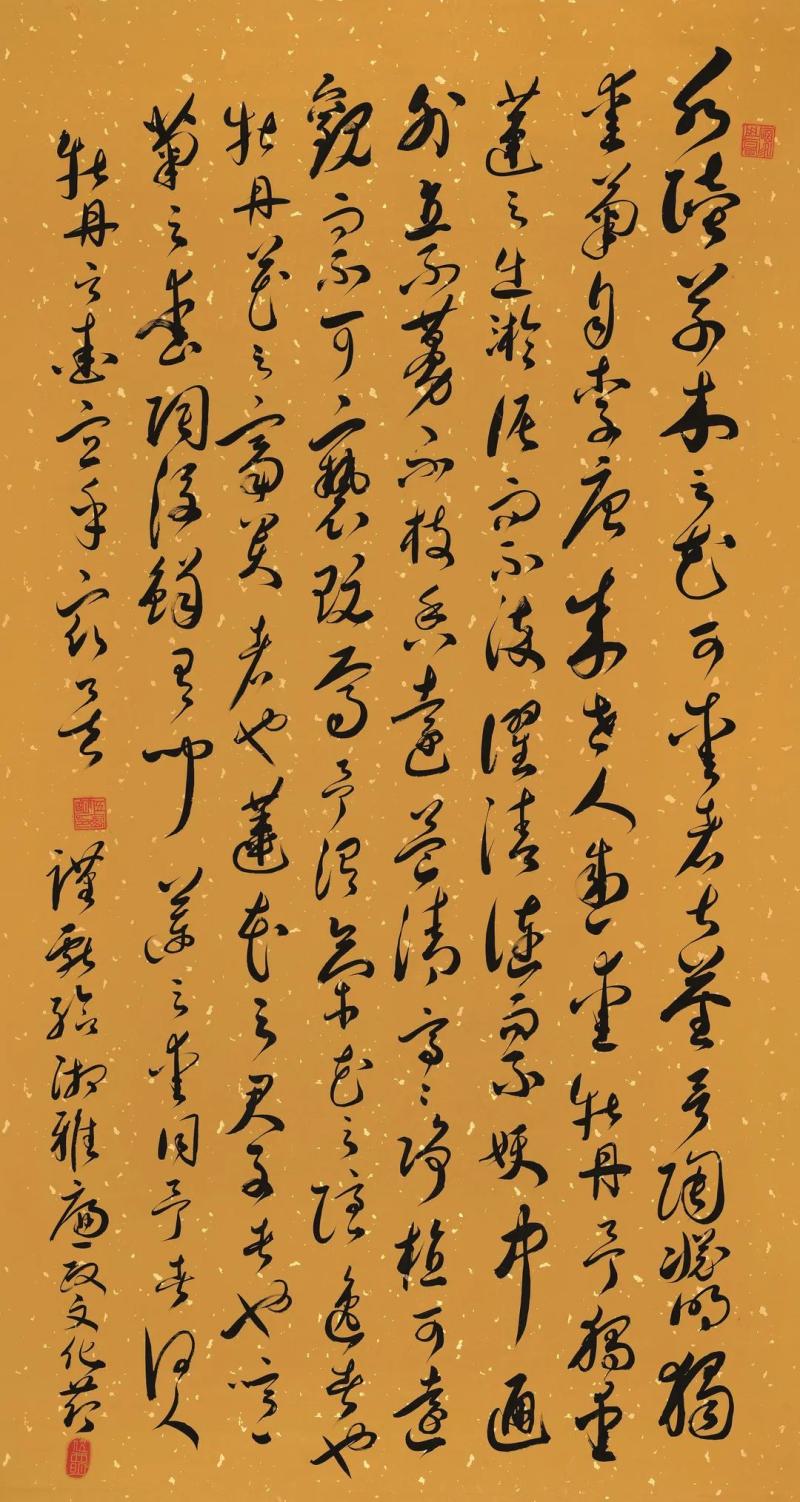 水陸草木之花可愛者甚蕃晉陶淵明獨
愛菊自李唐來世人盛愛牡丹予獨愛
蓮之出淤泥而不染濯清漣而不妖中通
外直不蔓不枝香遠益清亭〻淨植可遠
觀而不可褻玩焉予謂菊花之隱逸者也
牡丹花之富貴者也蓮花之君子者也噫
菊之愛陶後鮮有聞蓮之愛同予者何人
牡丹之愛宜乎衆矣 謹獻給湘雅廉政文化節